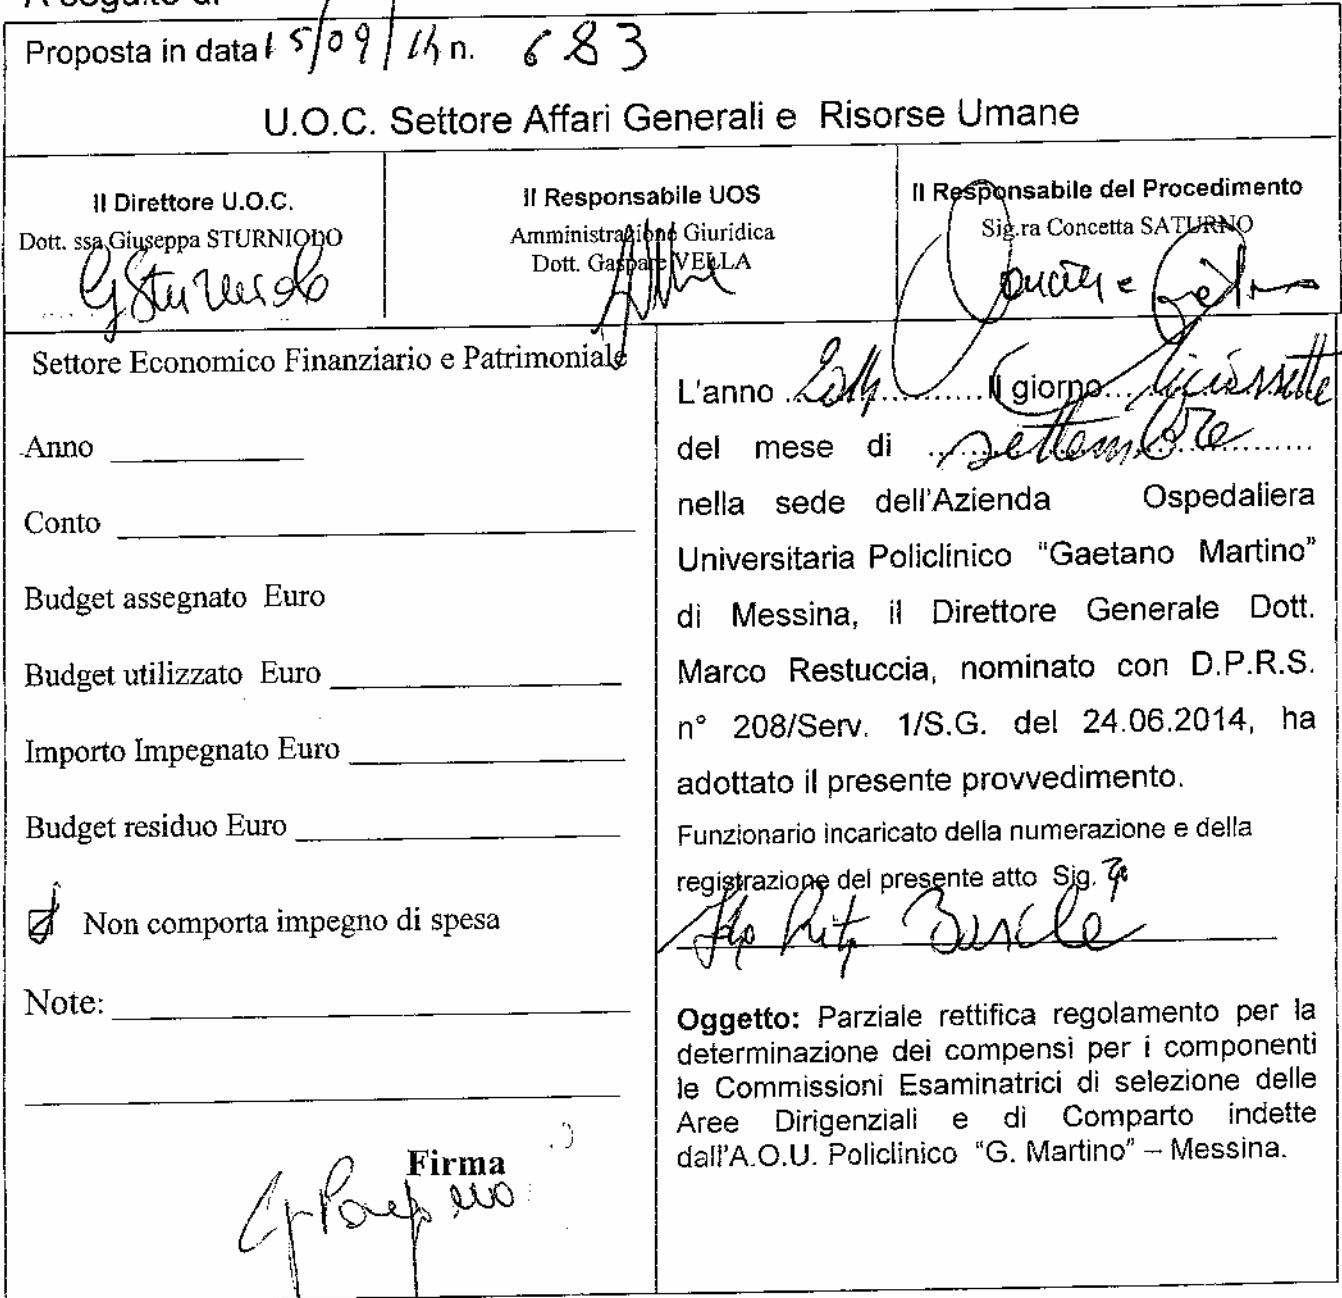 A seguito di
Proposta in data 15/09/14 n. 683
U.O.C. Settore Affari Generali e Risorse Umane
Il Direttore U.O.C.
Dott. ssa Giuseppa STURNIODO
G Sturniolo
Il Responsabile UOS
Amministrazione Giuridica
Dott. Gaspare VELLA
Il Responsabile del Procedimento
Sig.ra Concetta SATURNO
Settore Economico Finanziario e Patrimoniale
Anno
Conto
Budget assegnato Euro
Budget utilizzato Euro
Importo Impegnato Euro
Budget residuo Euro
Non comporta impegno di spesa
Note:
Firma
L'anno 2014 Il giorno diciassette
del mese di settembre
nella sede dell'Azienda Ospedaliera
Universitaria Policlinico "Gaetano Martino"
di Messina, il Direttore Generale Dott.
Marco Restuccia, nominato con D.P.R.S.
n° 208/Serv. 1/S.G. del 24.06.2014, ha
adottato il presente provvedimento.
Funzionario incaricato della numerazione e della
registrazione del presente atto Sig.
Oggetto: Parziale rettifica regolamento per la
determinazione dei compensi per i componenti
le Commissioni Esaminatrici di selezione delle
Aree Dirigenziali e di Comparto indette
dall'A.O.U. Policlinico "G. Martino" – Messina.